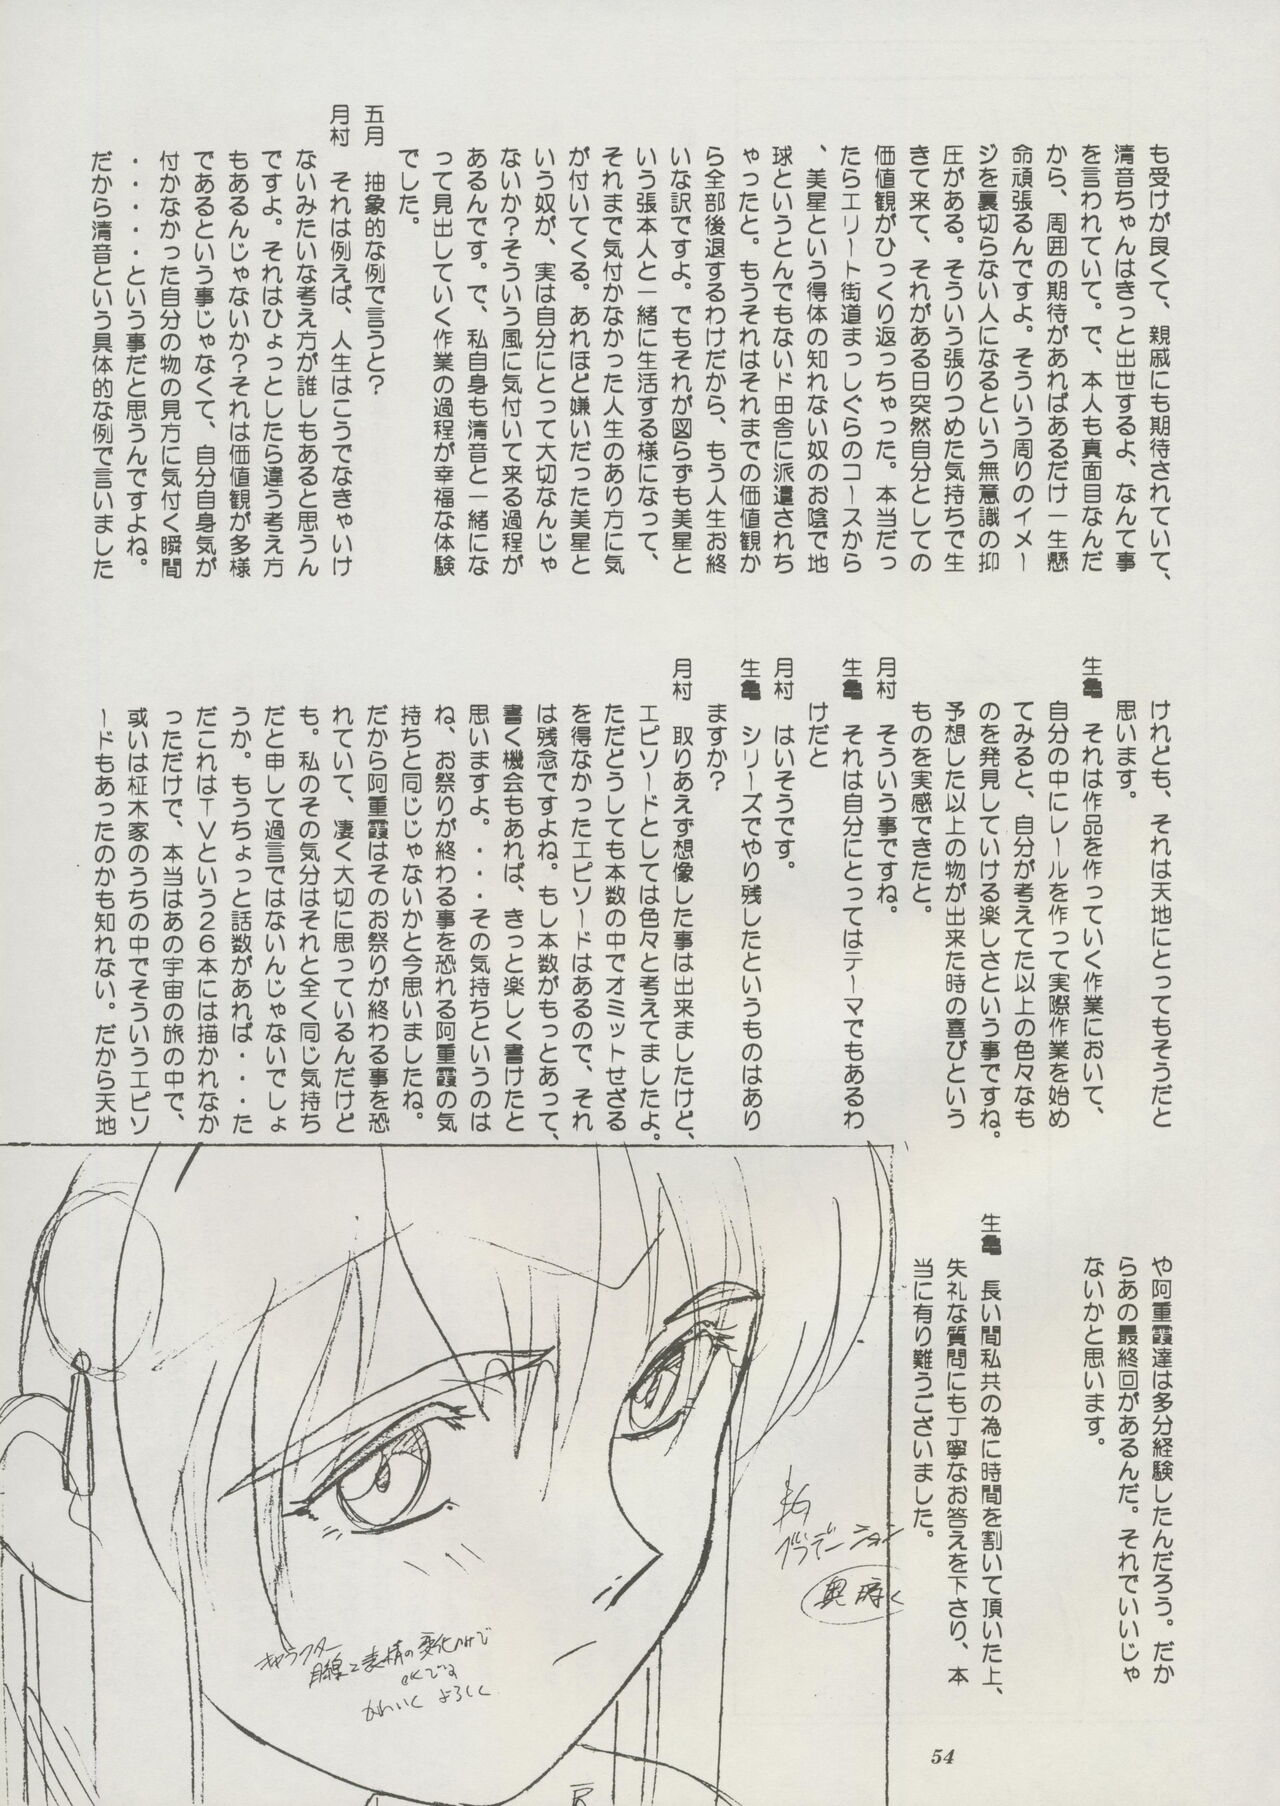 も受けが良くて、親戚にも期待されていて、
清音ちゃんはきっと出世するよ、なんて事
を言われていて。で、本人も真面目なんだ
から、周囲の期待があればあるだけ一生懸
命頑張るんですよ。そういう周りのイメー
ジを裏切らない人になるという無意識の抑
圧がある。そういう張りつめた気持ちで生
きて来て、それがある日突然自分としての
価値観がひっくり返っちゃった。本当だっ
たらエリート街道まっしぐらのコースから
、美星という得体の知れない奴のお陰で地
球というとんでもないド田舎に派遣されち
ゃったと。もうそれはそれまでの価値観か
ら全部後退するわけだから、もう人生お終
いな訳ですよ。でもそれが図らずも美星と
いう張本人と一緒に生活する様になって、
それまで気付かなかった人生のあり方に気
が付いてくる。あれほど嫌いだった美星と
いう奴が、実は自分にとって大切なんじゃ
ないか?そういう風に気付いて来る過程が
あるんです。で、私自身も清音と一緒にな
って見出していく作業の過程が幸福な体験
でした。
五月　抽象的な例で言うと?
月村　それは例えば、人生はこうでなきゃいけ
ないみたいな考え方が誰しもあると思うん
ですよ。それはひょっとしたら違う考え方
もあるんじゃないか?それは価値観が多様
であるという事じゃなくて、自分自身気が
付かなかった自分の物の見方に気付く瞬間
・・・・・という事だと思うんですよね。
だから清音という具体的な例で言いました
けれども、それは天地にとってもそうだと
思います。
生亀　それは作品を作っていく作業において、
自分の中にレールを作って実際作業を始め
てみると、自分が考えてた以上の色々なも
のを発見していける楽しさという事ですね。
予想した以上の物が出来た時の喜びという
ものを実感できたと。
月村　そういう事ですね。
生亀　それは自分にとってはテーマでもあるわ
けだと
月村　はいそうです。
生亀　シリーズでやり残したというものはあり
ますか?
月村　取りあえず想像した事は出来ましたけど、
エピソードとしては色々と考えてましたよ。
ただどうしても本数の中でオミットせざる
を得なかったエピソードはあるので、それ
は残念ですよね。もし本数がもっとあって、
書く機会もあれば、きっと楽しく書けたと
思いますよ。・・・その気持ちというのは
ね、お祭りが終わる事を恐れる阿重霞の気
持ちと同じじゃないかと今思いましたね。
だから阿重霞はそのお祭りが終わる事を恐
れていて、凄く大切に思っているんだけど
も。私のその気分はそれと全く同じ気持ち
だと申して過言ではないんじゃないでしょ
うか。もうちょっと話数があれば・・・た
だこれはTVという26本には描かれなか
っただけで、本当はあの宇宙の旅の中で、
或いは柾木家のうちの中でそういうエピソ
ードもあったのかも知れない。だから天地
や阿重霞達は多分経験したんだろう。だか
らあの最終回があるんだ。それでいいじゃ
ないかと思います。
生亀　長い間私共の為に時間を割いて頂いた上、
失礼な質問にも丁寧なお答えを下さり、本
当に有り難うございました。
グラデーション
キャラクター
目線と表情の変化つけて
OKです
かわいく よろしく
54